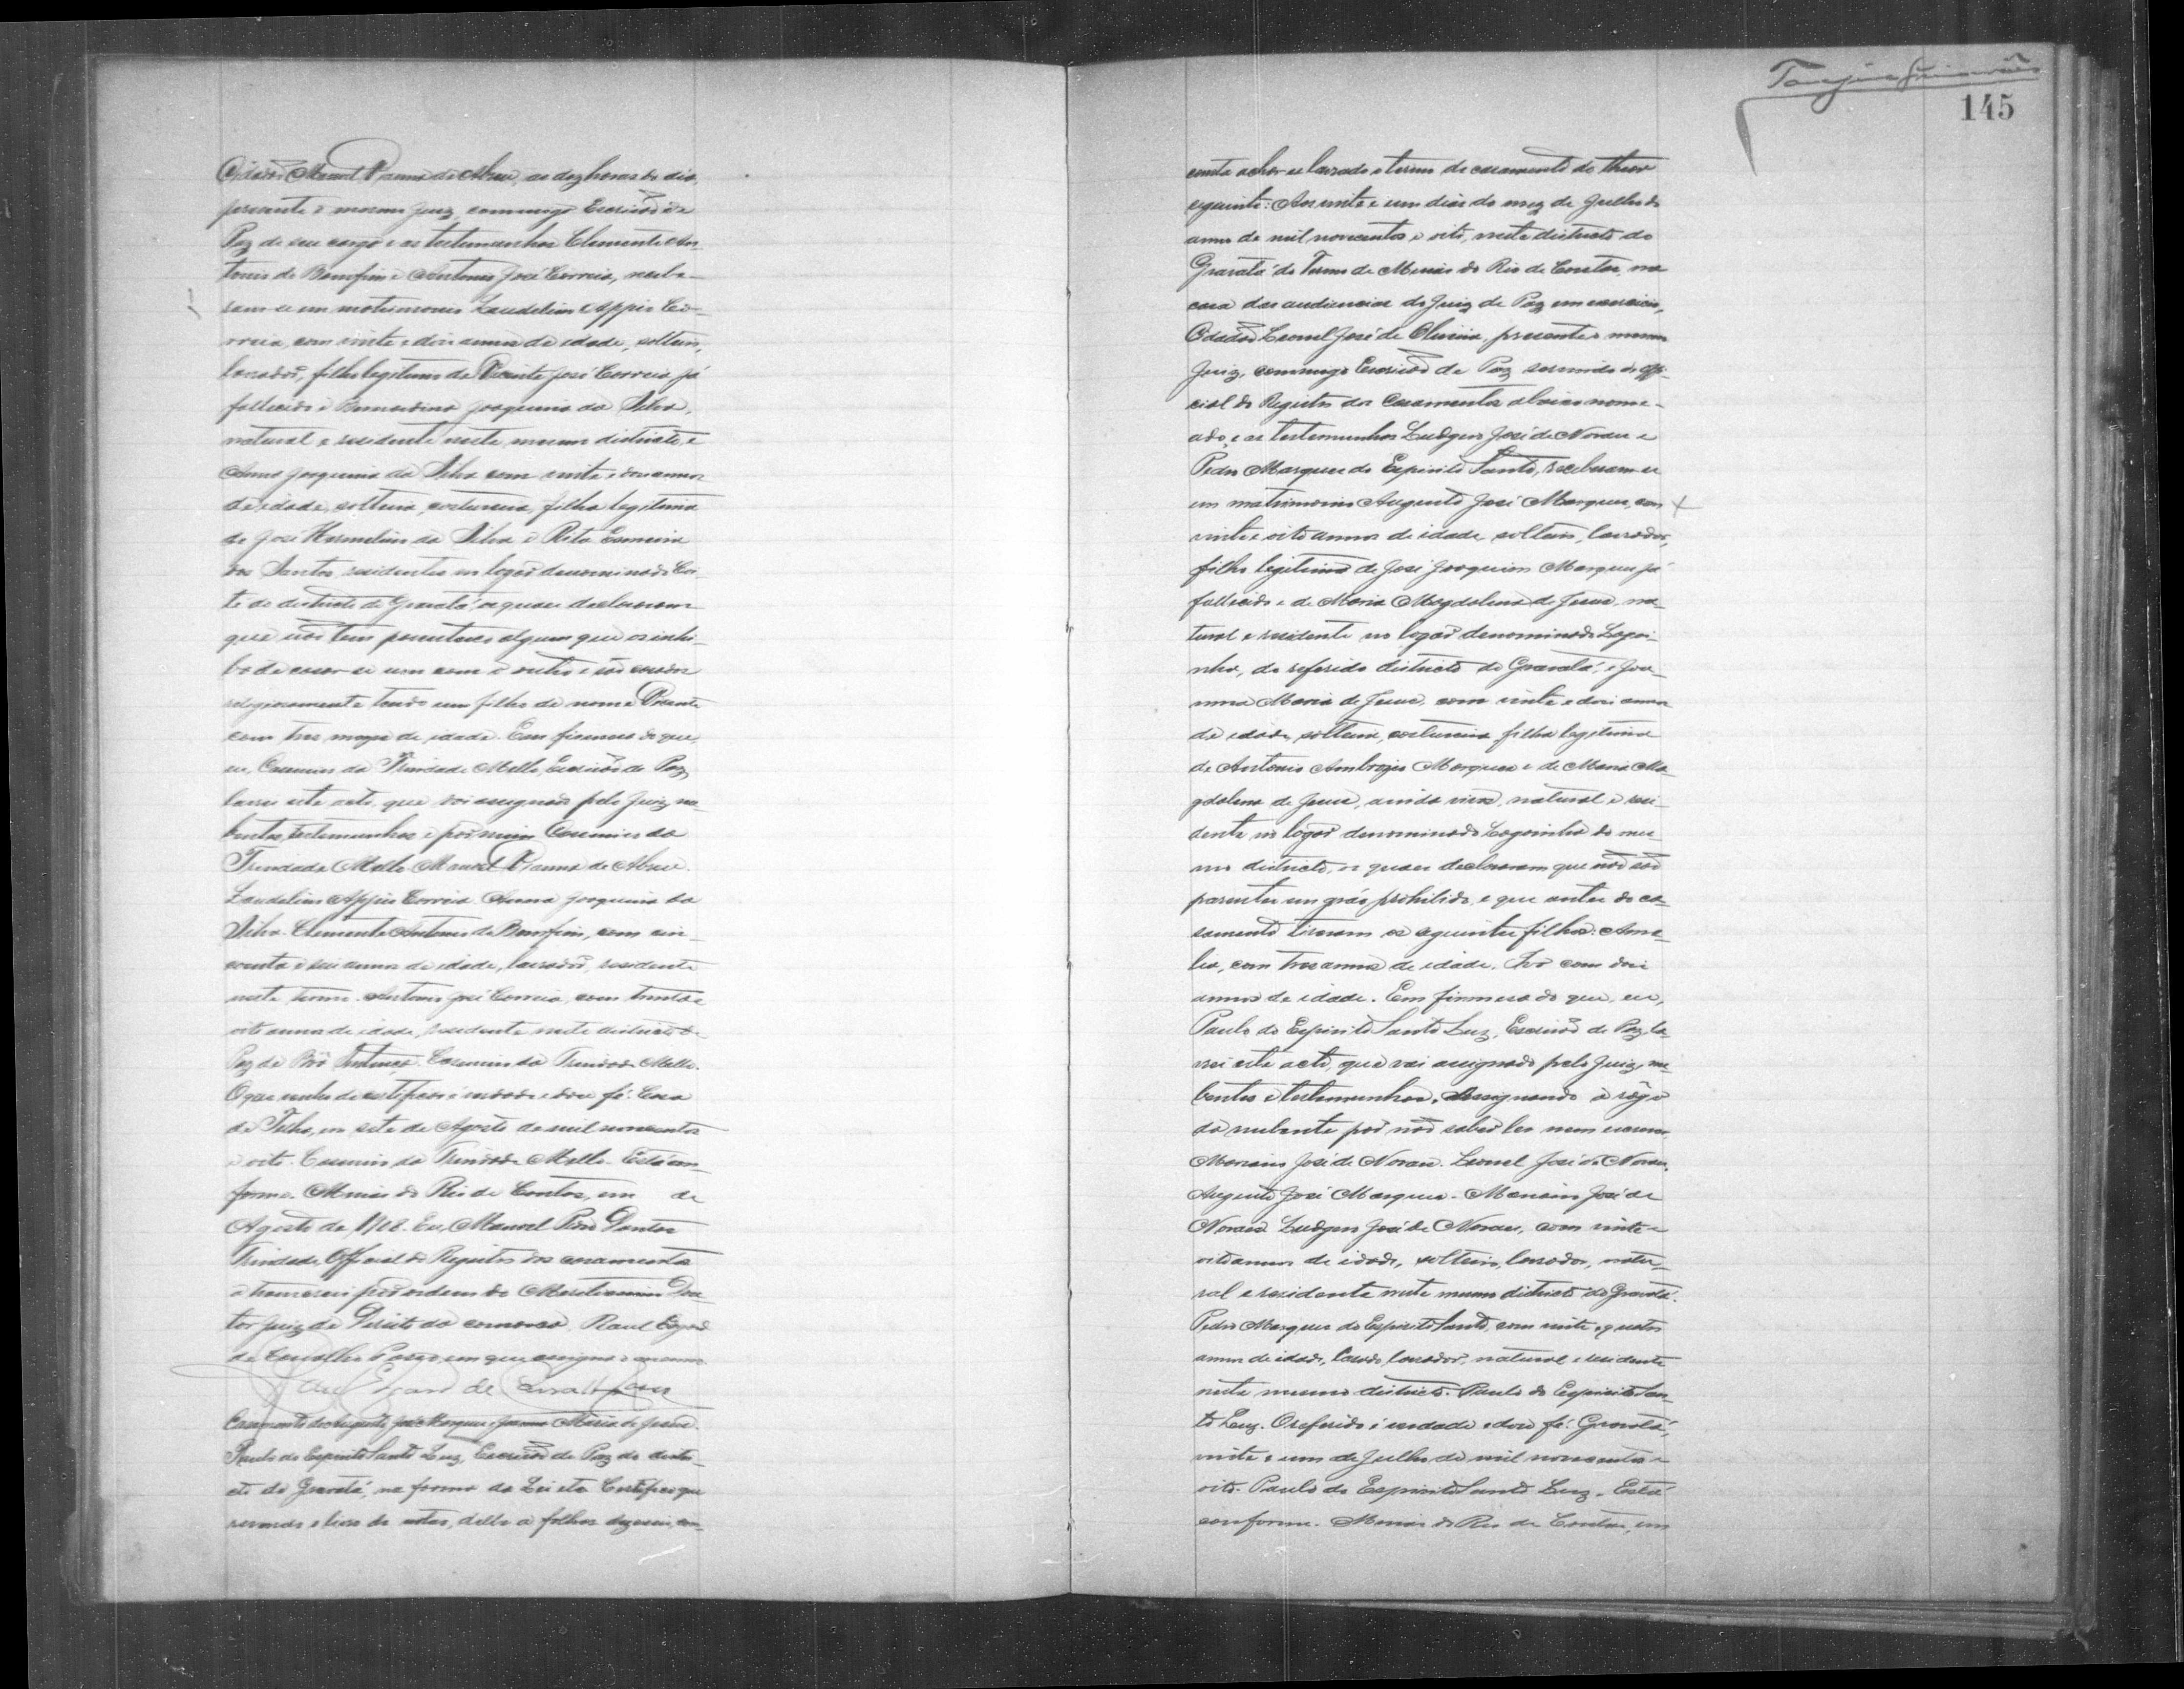 Cidadão Manoel Vianna de Abreu, as dez horas do dia,
presente o mesmo Juiz, commigo Escrivão de
Paz de seu cargo e as testemunhas Clemente An-
tonio de Bomfim e Antonio José Correia, recebe-
ram-se em matrimonio Laudelino Appio Co-
rreia, com vinte e dois annos de idade, solteiro,
lavrador, filho legitimo de Vicente José Correia já
fallecido e Bernardina Joaquina da Silva,
natural e residente neste mesmo districto, e
Anna Joaquina da Silva com vinte e dois annos
de idade, solteira, costureira, filha legitima
de José Hermelino da Silva e Rita
dos Santos, residentes no logar denominado Cor-
te do districto de Gravatá, os quaes declararam
que não tem parentesco algum que os inhi-
ba de casar-se um com o outro e são casados
religiosamente tendo um filho de nome Vicente
com tres mezes de idade. Em firmeza do que,
eu, Casemiro da Trindade Mello, Escrivão de Paz
lavrei este acto, que vai assignado pelo Juiz, nu-
bentes, testemunhas e por mim Casemiro da
Trindade Mello. Manoel Vianna de Abreu.
Laudelino Appio Correia. Anna Joaquina da
Silva. Clemente Antonio de Bomfim, com cin-
coenta e seis annos de idade, lavrador, residente
neste termo. Antonio José Correia, com trinta e
oito annos de idade, residente neste districto de
Paz de Bôa Sentença. Casemiro da Trindade Mello.
O que venho de certificar é verdade e dou fé. Casa
de Telha, em sete de Agosto de mil novecentos
e oito. Casemiro da Trindade Mello. Está con-
forme. Minas do Rio de Contas, em de
Agosto de 1908. Eu, Manoel Pires Dantas
Trindade, Official do Registro dos casamentos
a transcrevi por ordem do Meretissimo Dou-
tor Juiz de Direito da comarca, Raul Edgard
de Carvalho em que assigna
Raul Edgard de Carvalho
Casamento de Augusto José Marques e Joanna Maria de Jesus.
Paulo do Espirito Santo Luz, Escrivão de Paz do distri-
cto do Gravatá, na forma da Lei etc. Certifico que
revendo o livro de notas, delle a folhas dezeseis, con-
Tanajura Guimarães
145
consta achar-se lavrado o termo de casamento do theor
seguinte: Aos vinte e um dias do mez de Julho do
anno de mil novecentos e oito, neste districto do
Gravatá do Termo de Minas do Rio de Contas, na
casa das audiencias do Juiz de Paz em exercicio,
Cidadão Leonel José de Oliveira, presente o mesmo
Juiz, commigo Escrivão de Paz servindo de offi-
cial do Registro dos Casamentos abaixo nome-
ado, e as testemunhas Ludgero José de Novaes e
Pedro Marques do Espirito Santo, receberam-se
em matrimonio Augusto José Marques, com
vinte e oito annos de idade, solteiro, lavrador,
filho legitimo de José Joaquim Marques já
fallecido e de Maria Magdalena de Jesus, na-
tural e residente no logar denominado Lagoi-
nha, do referido districto do Gravatá, e Joa-
nna Maria de Jesus, com vinte e dois annos
de idade, solteira, costureira, filha legitima
de Antonio Ambrozio Marques e de Maria Ma-
gdalena de Jesus, ainda vivos, natural e resi-
dente no logar denominado Lagoinha do mes-
mo districto, os quaes declararam que não são
parentes em gráo prohibido, e que antes do ca-
samento tiveram os seguintes filhos: Ame-
lia, com tres annos de idade. Ivo com dois
annos de idade. Em firmeza do que, eu,
Paulo do Espirito Santo Luz, Escrivão de Paz, la-
vrei este acto, que vai assignado pelo Juiz, nu-
bentes e testemunhas. Assignando a rôgo
da nubente por não saber ler nem escrever
José de Novaes. Leonel José de Novaes.
Augusto José Marques. José de
Novaes. Ludgero José de Novaes, com vinte e
oito annos de idade, solteiro, lavrador, natu-
ral e residente neste mesmo districto do Gravatá.
Pedro Marques do Espirito Santo, com vinte e quatro
annos de idade, casado, lavrador, natural e residente
neste mesmo districto. Paulo do Espirito San-
to Luz. O referido é verdade e dou fé. Gravatá,
vinte e um de Julho de mil novecentos e
oito. Paulo do Espirito Santo Luz. Está
conforme. Minas do Rio de Contas, em